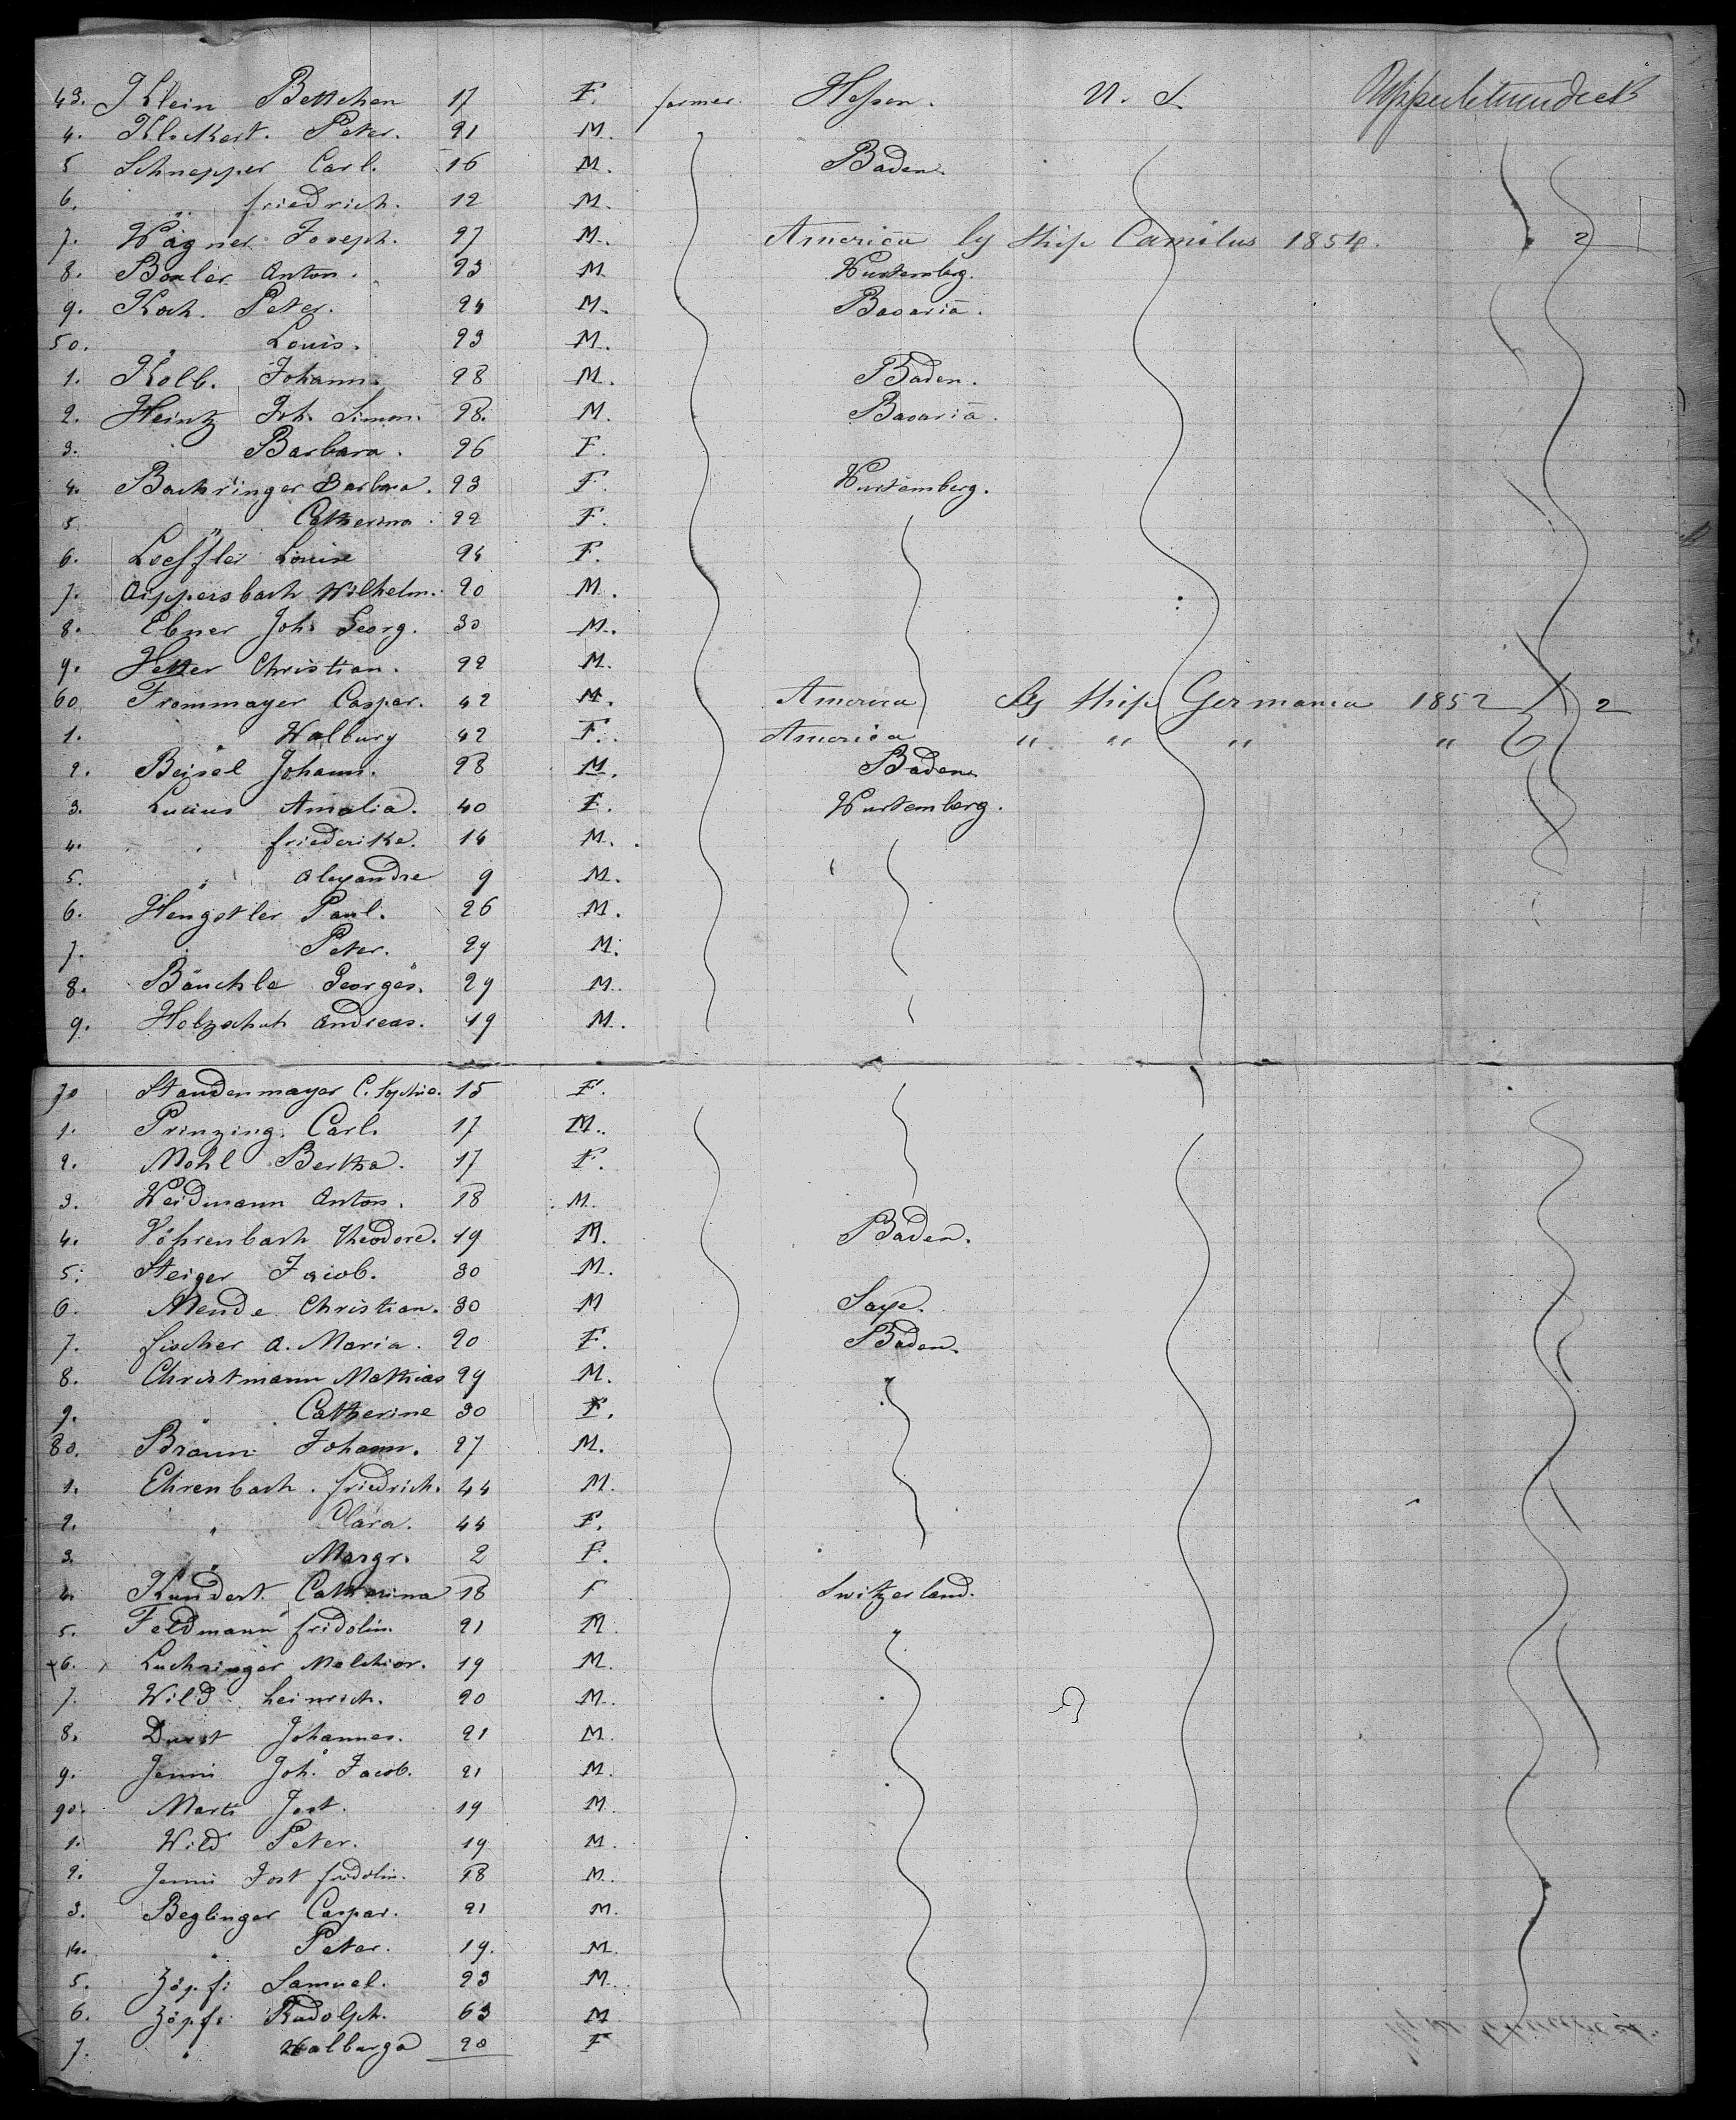 43. Klein Bettchen 17 F. farmer. Hessen. U. S. Upperbetweendeck
4. Klockert. Peter. 21 M.
5 Schnepper Carl. 16 M. Baden.
6. " friedrich. 12 M.
7. Wagner Joseph. 27 M. America by ship Camilus 1854. 2
8. Boxler Anton. 23 M. Wurtemberg.
9. Koch. Peter. 24 M. Bavaria.
50. " Louis. 23 M.
1. Kolb. Johann. 28 M. Baden.
2. Heintz Joh. Simon. 28. M. Bavaria.
3. " Barbara. 26 F.
4. Bachringer Barbara. 23 F. Wurtemberg.
5 " Catherina. 22 F.
6. Loeffler Louise 24 F.
7. Aippersbach Wilhelm. 20 M.
8. Ebner Joh. Georg. 30 M.
9. Hetter Christian. 22 M.
60 Frommayer Caspar. 42 M. America by ship Germania 1852 2
1. " Walburg 42 F. America " " " "
2. Beisel Johann. 28 M. Baden.
3. Lucius Amalia. 40 F. Wurtemberg.
4. " friederike. 14 M.
5. " Alexandre 9 M.
6. Hengstler Paul. 26 M.
7. " Peter. 29 M.
8. Bäuchle Georges. 29 M.
9. Holzschuh Andreas. 49 M.
70 Staudenmayer C. Sophie. 15 F.
1. Prinzing. Carl. 17 M.
2. Mohl Bertha. 17 F.
3. Weidmann Anton. 18 M.
4. Vöhrenbach Theodore. 19 M. Baden.
5. Steiger Jacob. 30 M.
6. Mende Christian. 30 M Saxe.
7. fischer A. Maria. 20 F. Baden.
8. Christmann Mathias 29 M. "
9. " Catherine 30 F.
80. Braun Johann. 27 M.
1. Ehrenbach. friedrich. 44 M.
2. " Clara. 44 F.
3. " Margr. 2 F.
4. Kundert. Catharina 18 F Switzerland.
5. Feldmann fridolin. 21 M.
6. Luchsinger Melchior. 19 M.
7. Wild heinrich. 20 M.
8. Durst Johannes. 21 M.
9. Jenni Joh. Jacob. 21 M.
90. Marti Jost. 19 M.
1. Wild Peter. 19 M.
2. Jenni Jost fridolin. 18 M.
3. Beglinger Caspar. 21 M.
4. " Peter. 19. M.
5. Zöpfi Samuel. 23 M.
6. Zöpfi Rudolph. 63 M
7. " Walburga 20 F